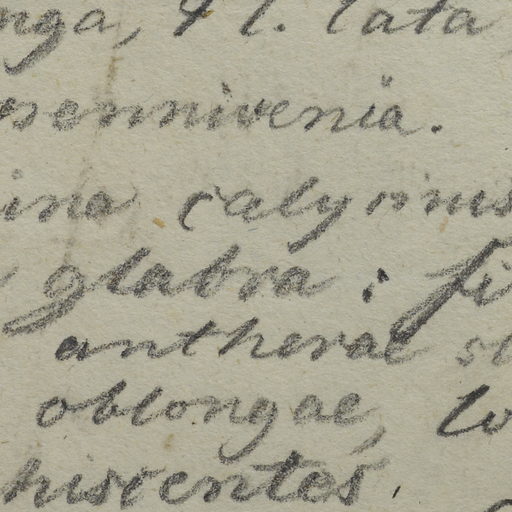 nga, 4 l. lata
sennivenia.
ina calycinis
glabra; fi
antherae
oblongae, lo
hiscentes.